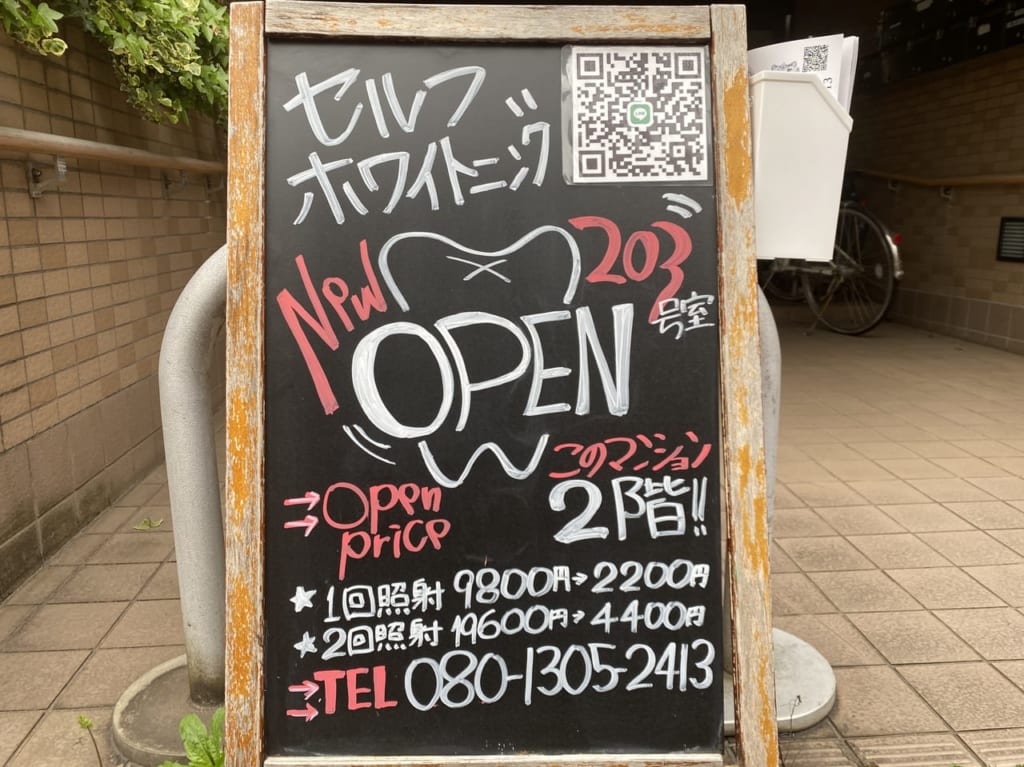 セルフ
ホワイトニング
New
203
号室
OPEN
このマンション
2階!!
→ Open
→ price
★ 1回照射 9800円→2200円
★ 2回照射 19600円→4400円
→ TEL 080-1305-2413